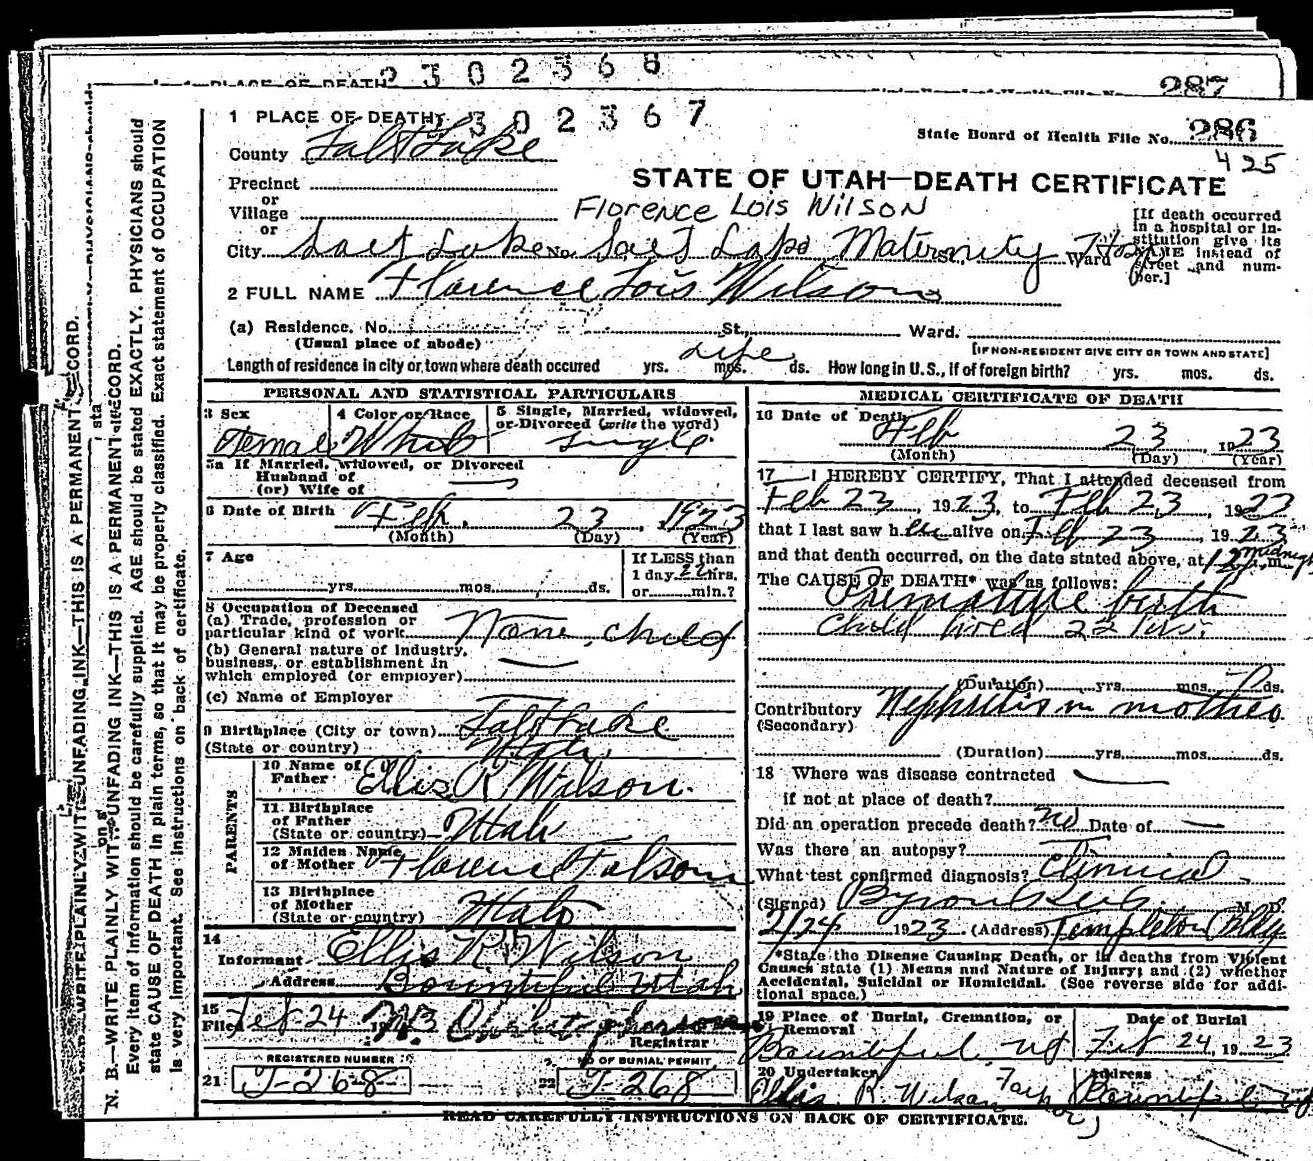 2302368
1 PLACE OF DEATH
287
2302367
1 PLACE OF DEATH
State Board of Health File No. 286
425
County Salt Lake
Precinct
or
Village
or
STATE OF UTAH—DEATH CERTIFICATE
Florence Lois Wilson
City Salt Lake No. Salt Lake Maternity St., Ward Hosp
[If death occurred
in a hospital or in-
stitution give its
NAME instead of
street and num-
ber.]
2 FULL NAME Florence Lois Wilson
(a) Residence. No. St., Ward.
(Usual place of abode)
[IF NON-RESIDENT GIVE CITY OR TOWN AND STATE]
Length of residence in city or town where death occured yrs. mos. ds. Life How long in U. S., if of foreign birth? yrs. mos. ds.
PERSONAL AND STATISTICAL PARTICULARS
3 Sex
Female
4 Color or Race
White
5 Single, Married, widowed,
or Divorced (write the word)
single
5a If Married, widowed, or Divorced
Husband of
(or) Wife of
6 Date of Birth Feb. 23, 1923
(Month) (Day) (Year)
7 Age
yrs. mos. ds.
If LESS than
1 day 22 hrs.
or min.?
8 Occupation of Deceased
(a) Trade, profession or
particular kind of work None, child
(b) General nature of industry,
business, or establishment in
which employed (or employer)
(c) Name of Employer
9 Birthplace (City or town) Salt Lake
(State or country) Utah
PARENTS
10 Name of
Father Ellis R Wilson
11 Birthplace
of Father
(State or country) Utah
12 Maiden Name
of Mother Florence Folsom
13 Birthplace
of Mother
(State or country) Utah
14
Informant Ellis R Wilson
Address Bountiful Utah
15
Filed Feb 24
Registrar
REGISTERED NUMBER
21 J-268
NO OF BURIAL PERMIT
22 J-268
MEDICAL CERTIFICATE OF DEATH
16 Date of Death
Feb 23 1923
(Month) (Day) (Year)
17 I HEREBY CERTIFY, That I attended deceased from
Feb 23, 1923, to Feb 23, 1923
that I last saw her alive on Feb 23, 1923
and that death occurred, on the date stated above, at 12 m. midnight
The CAUSE OF DEATH* was as follows:
Premature birth
Child lived 22 hrs.
(Duration) yrs. mos. ds.
Contributory Nephritis in mother
(Secondary)
(Duration) yrs. mos. ds.
18 Where was disease contracted
if not at place of death?
Did an operation precede death? no Date of
Was there an autopsy?
What test confirmed diagnosis? Clinical
(Signed) M. D.
2/24 1923 (Address) Templeton Bldg
*State the Disease Causing Death, or in deaths from Violent
Causes state (1) Means and Nature of Injury; and (2) whether
Accidental, Suicidal or Homicidal. (See reverse side for addi-
tional space.)
19 Place of Burial, Cremation, or
Removal
Bountiful Ut
Date of Burial
Feb 24, 1923
20 Undertaker
Ellis R. Wilson Father
Address
Bountiful Ut
READ CAREFULLY INSTRUCTIONS ON BACK OF CERTIFICATE.
N. B.—WRITE PLAINLY WITH UNFADING INK—THIS IS A PERMANENT RECORD.
Every item of information should be carefully supplied. AGE should be stated EXACTLY. PHYSICIANS should
state CAUSE OF DEATH in plain terms, so that it may be properly classified. Exact statement of OCCUPATION
is very important. See instructions on back of certificate.